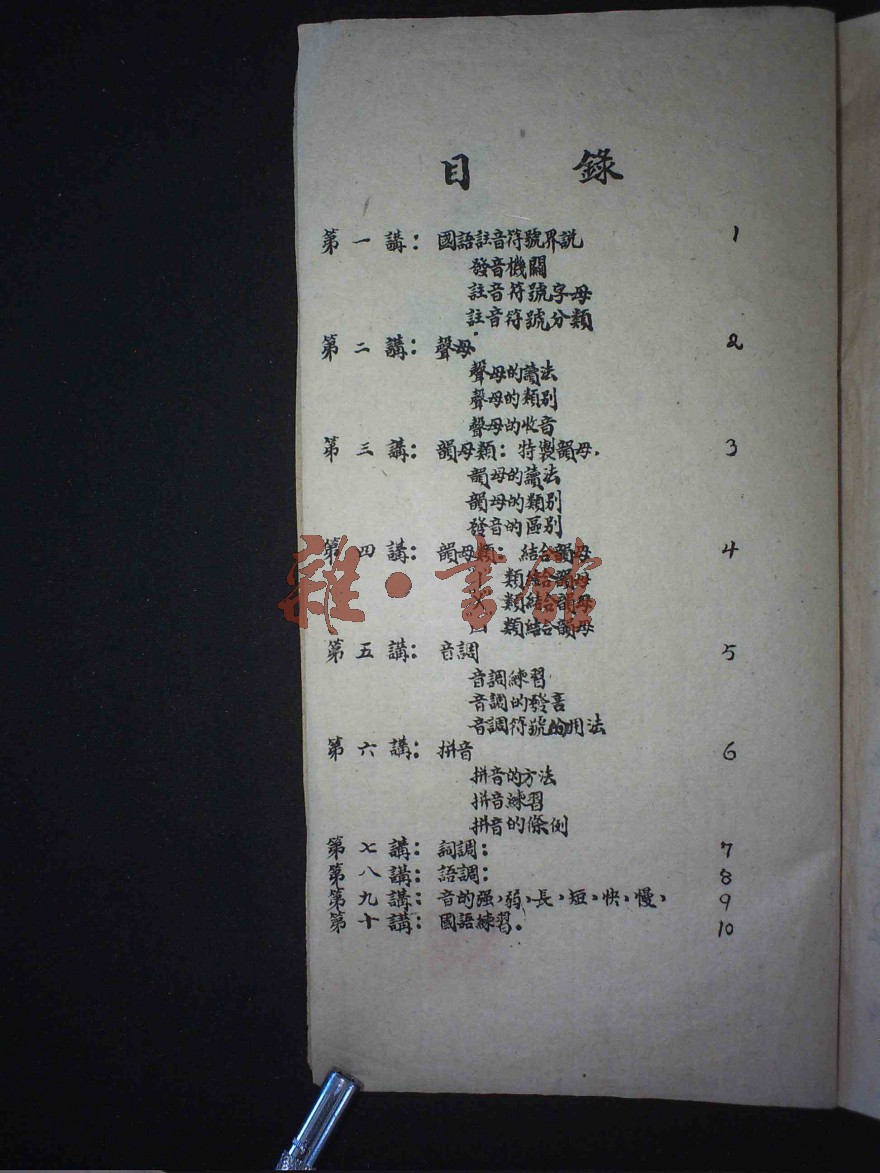 目 錄
第一講：國語註音符號界說 1
發音機關
註音符號字母
註音符號分類
第二講：聲母 2
聲母的讀法
聲母的類别
聲母的收音
第三講：韻母類：特製韻母． 3
韻母的讀法
韻母的類别
發音的區别
第四講：韻母類：結合韻母 4
丨 類結合韻母
ㄨ 類結合韻母
ㄩ 類結合韻母
雜·書館
第五講：音調 5
音調練習
音調的發言
音調符號的用法
第六講：拼音 6
拼音的方法
拼音練習
拼音的條例
第七講：詞調： 7
第八講：語調： 8
第九講：音的强，弱，長，短，快，慢， 9
第十講：國語練習。 10